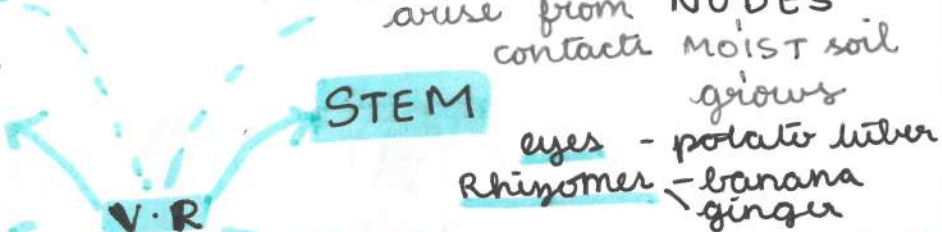 arise from NODES
contacts MOIST soil
STEM
grows
eyes - potato tuber
Rhizomes - banana
ginger
V.R